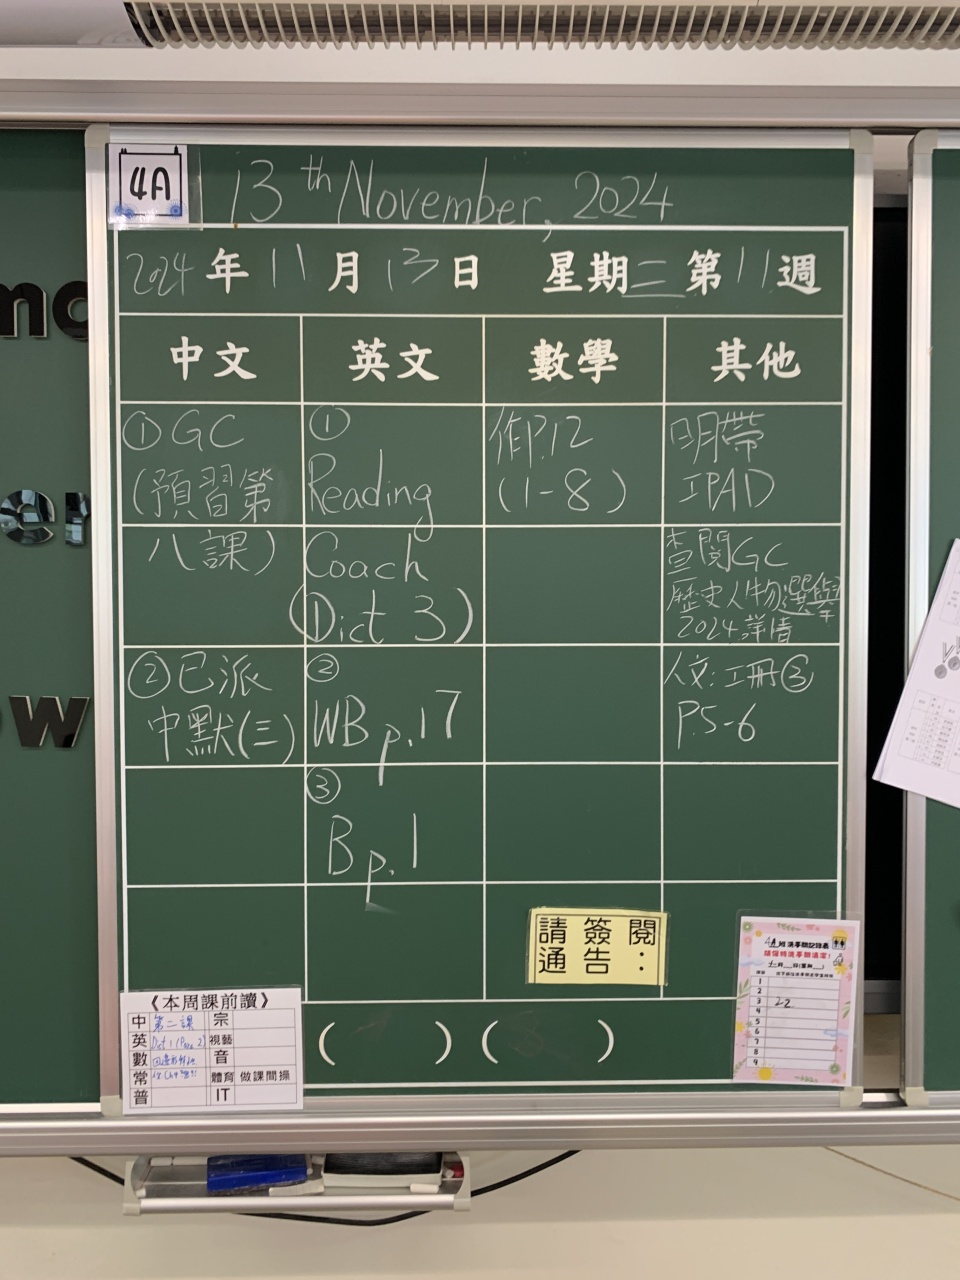 4A
13th November, 2024
2024年11月13日 星期三第11週
中文 英文 數學 其他
①GC
(預習第
八課)
②已派
中默(三)
①
Reading
Coach
(Dict 3)
②
WB p.17
③
B p.1
作P.12
(1-8)
明帶
IPAD
查閱GC
歷史人物選舉
2024詳情
人文:工冊③
P.5-6
請簽閱
通告:
( ) ( )
《本周課前讀》
中 第二課 宗
英 視藝
數 音
常 體育 做課間操
普 IT
1
2
3 22
4
5
6
7
8
9
mo
er
ow